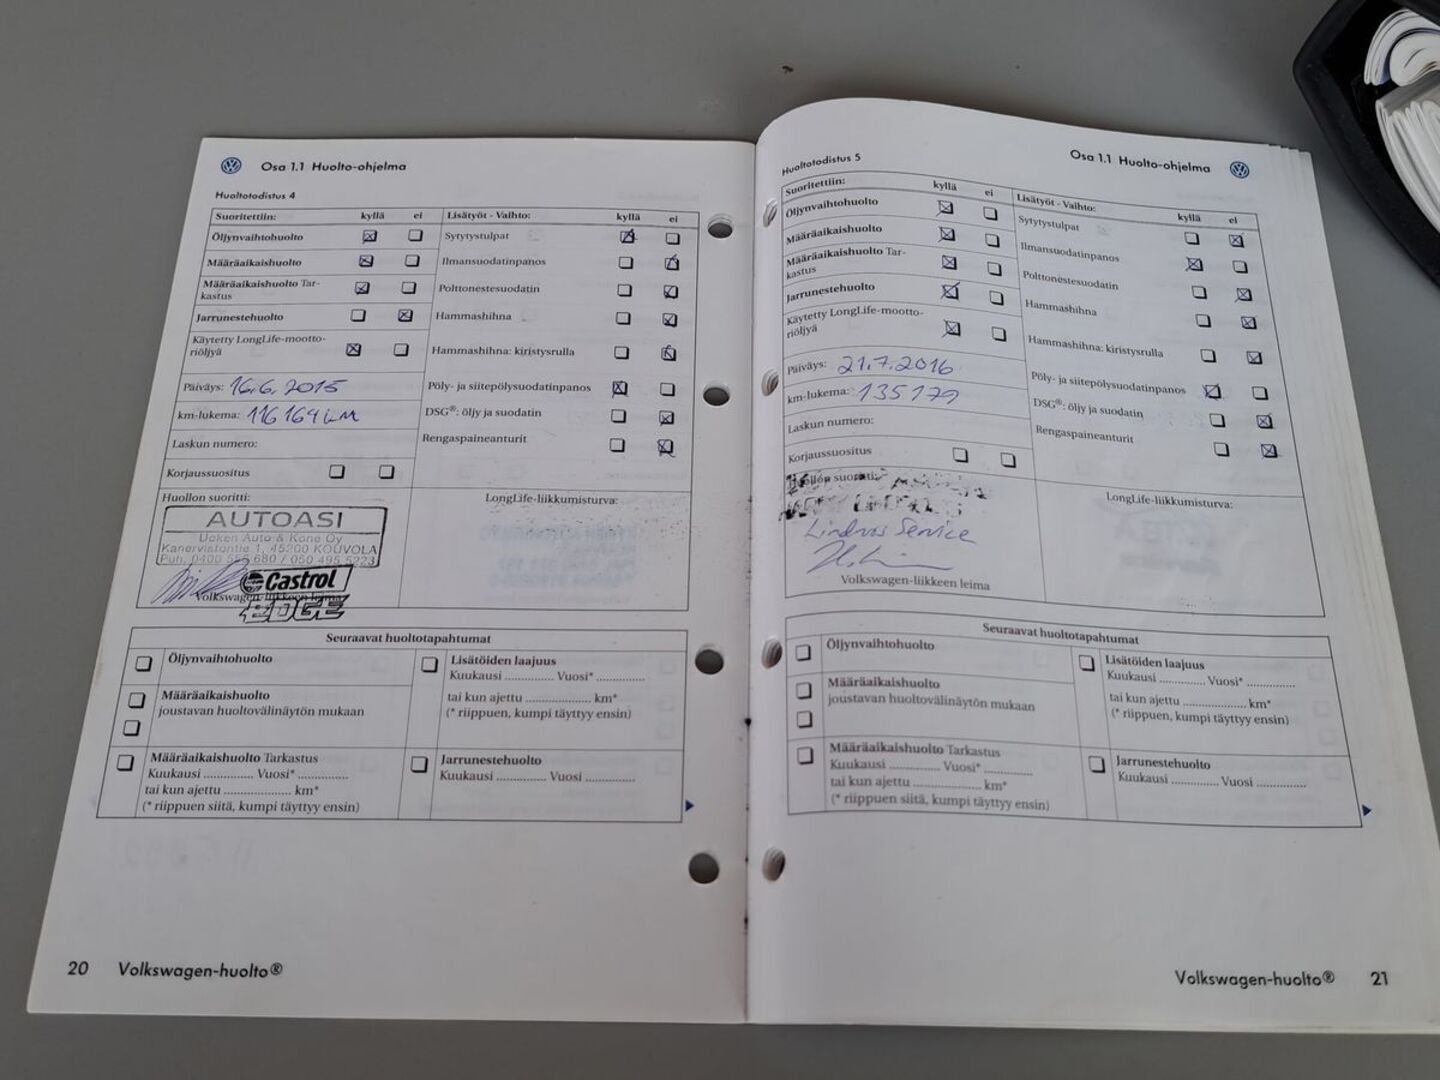 Osa 1.1 Huolto-ohjelma
Huoltotodistus 4
Suoritettiin: kyllä ei
Öljynvaihtohuolto
Määräaikaishuolto
Määräaikaishuolto Tar-
kastus
Jarrunestehuolto
Käytetty LongLife-mootto-
riöljyä
Päiväys: 16.6.2015
km-lukema: 116164 km
Laskun numero:
Korjaussuositus
Huollon suoritti:
AUTOASI
Ucken Auto-& Kone Oy
Kanervistontie 1, 45200 KOUVOLA
Puh. 0400 555 680 / 050 495 5223
Castrol
EDGE
Volkswagen-liikkeen leima
Lisätyöt - Vaihto: kyllä ei
Sytytystulpat
Ilmansuodatinpanos
Polttonestesuodatin
Hammashihna
Hammashihna: kiristysrulla
Pöly- ja siitepölysuodatinpanos
DSG®: öljy ja suodatin
Rengaspaineanturit
LongLife-liikkumisturva:
Seuraavat huoltotapahtumat
Öljynvaihtohuolto
Määräaikaishuolto
joustavan huoltovälinäytön mukaan
Määräaikaishuolto Tarkastus
Kuukausi .............. Vuosi* ..............
tai kun ajettu .................... km*
(* riippuen siitä, kumpi täyttyy ensin)
Lisätöiden laajuus
Kuukausi .............. Vuosi* ..............
tai kun ajettu ................... km*
(* riippuen, kumpi täyttyy ensin)
Jarrunestehuolto
Kuukausi .............. Vuosi ..............
20 Volkswagen-huolto®
Osa 1.1 Huolto-ohjelma
Huoltotodistus 5
Suoritettiin: kyllä ei
Öljynvaihtohuolto
Määräaikaishuolto
Määräaikaishuolto Tar-
kastus
Jarrunestehuolto
Käytetty LongLife-mootto-
riöljyä
Päiväys: 21.7.2016
km-lukema: 135179
Laskun numero:
Korjaussuositus
Huollon suoritti:
Lindros Service
Volkswagen-liikkeen leima
Lisätyöt - Vaihto: kyllä ei
Sytytystulpat
Ilmansuodatinpanos
Polttonestesuodatin
Hammashihna
Hammashihna: kiristysrulla
Pöly- ja siitepölysuodatinpanos
DSG®: öljy ja suodatin
Rengaspaineanturit
LongLife-liikkumisturva:
Seuraavat huoltotapahtumat
Öljynvaihtohuolto
Määräaikaishuolto
joustavan huoltovälinäytön mukaan
Määräaikaishuolto Tarkastus
Kuukausi .............. Vuosi* ..............
tai kun ajettu .................... km*
(* riippuen siitä, kumpi täyttyy ensin)
Lisätöiden laajuus
Kuukausi .............. Vuosi* ..............
tai kun ajettu ................... km*
(* riippuen, kumpi täyttyy ensin)
Jarrunestehuolto
Kuukausi .............. Vuosi ..............
Volkswagen-huolto® 21